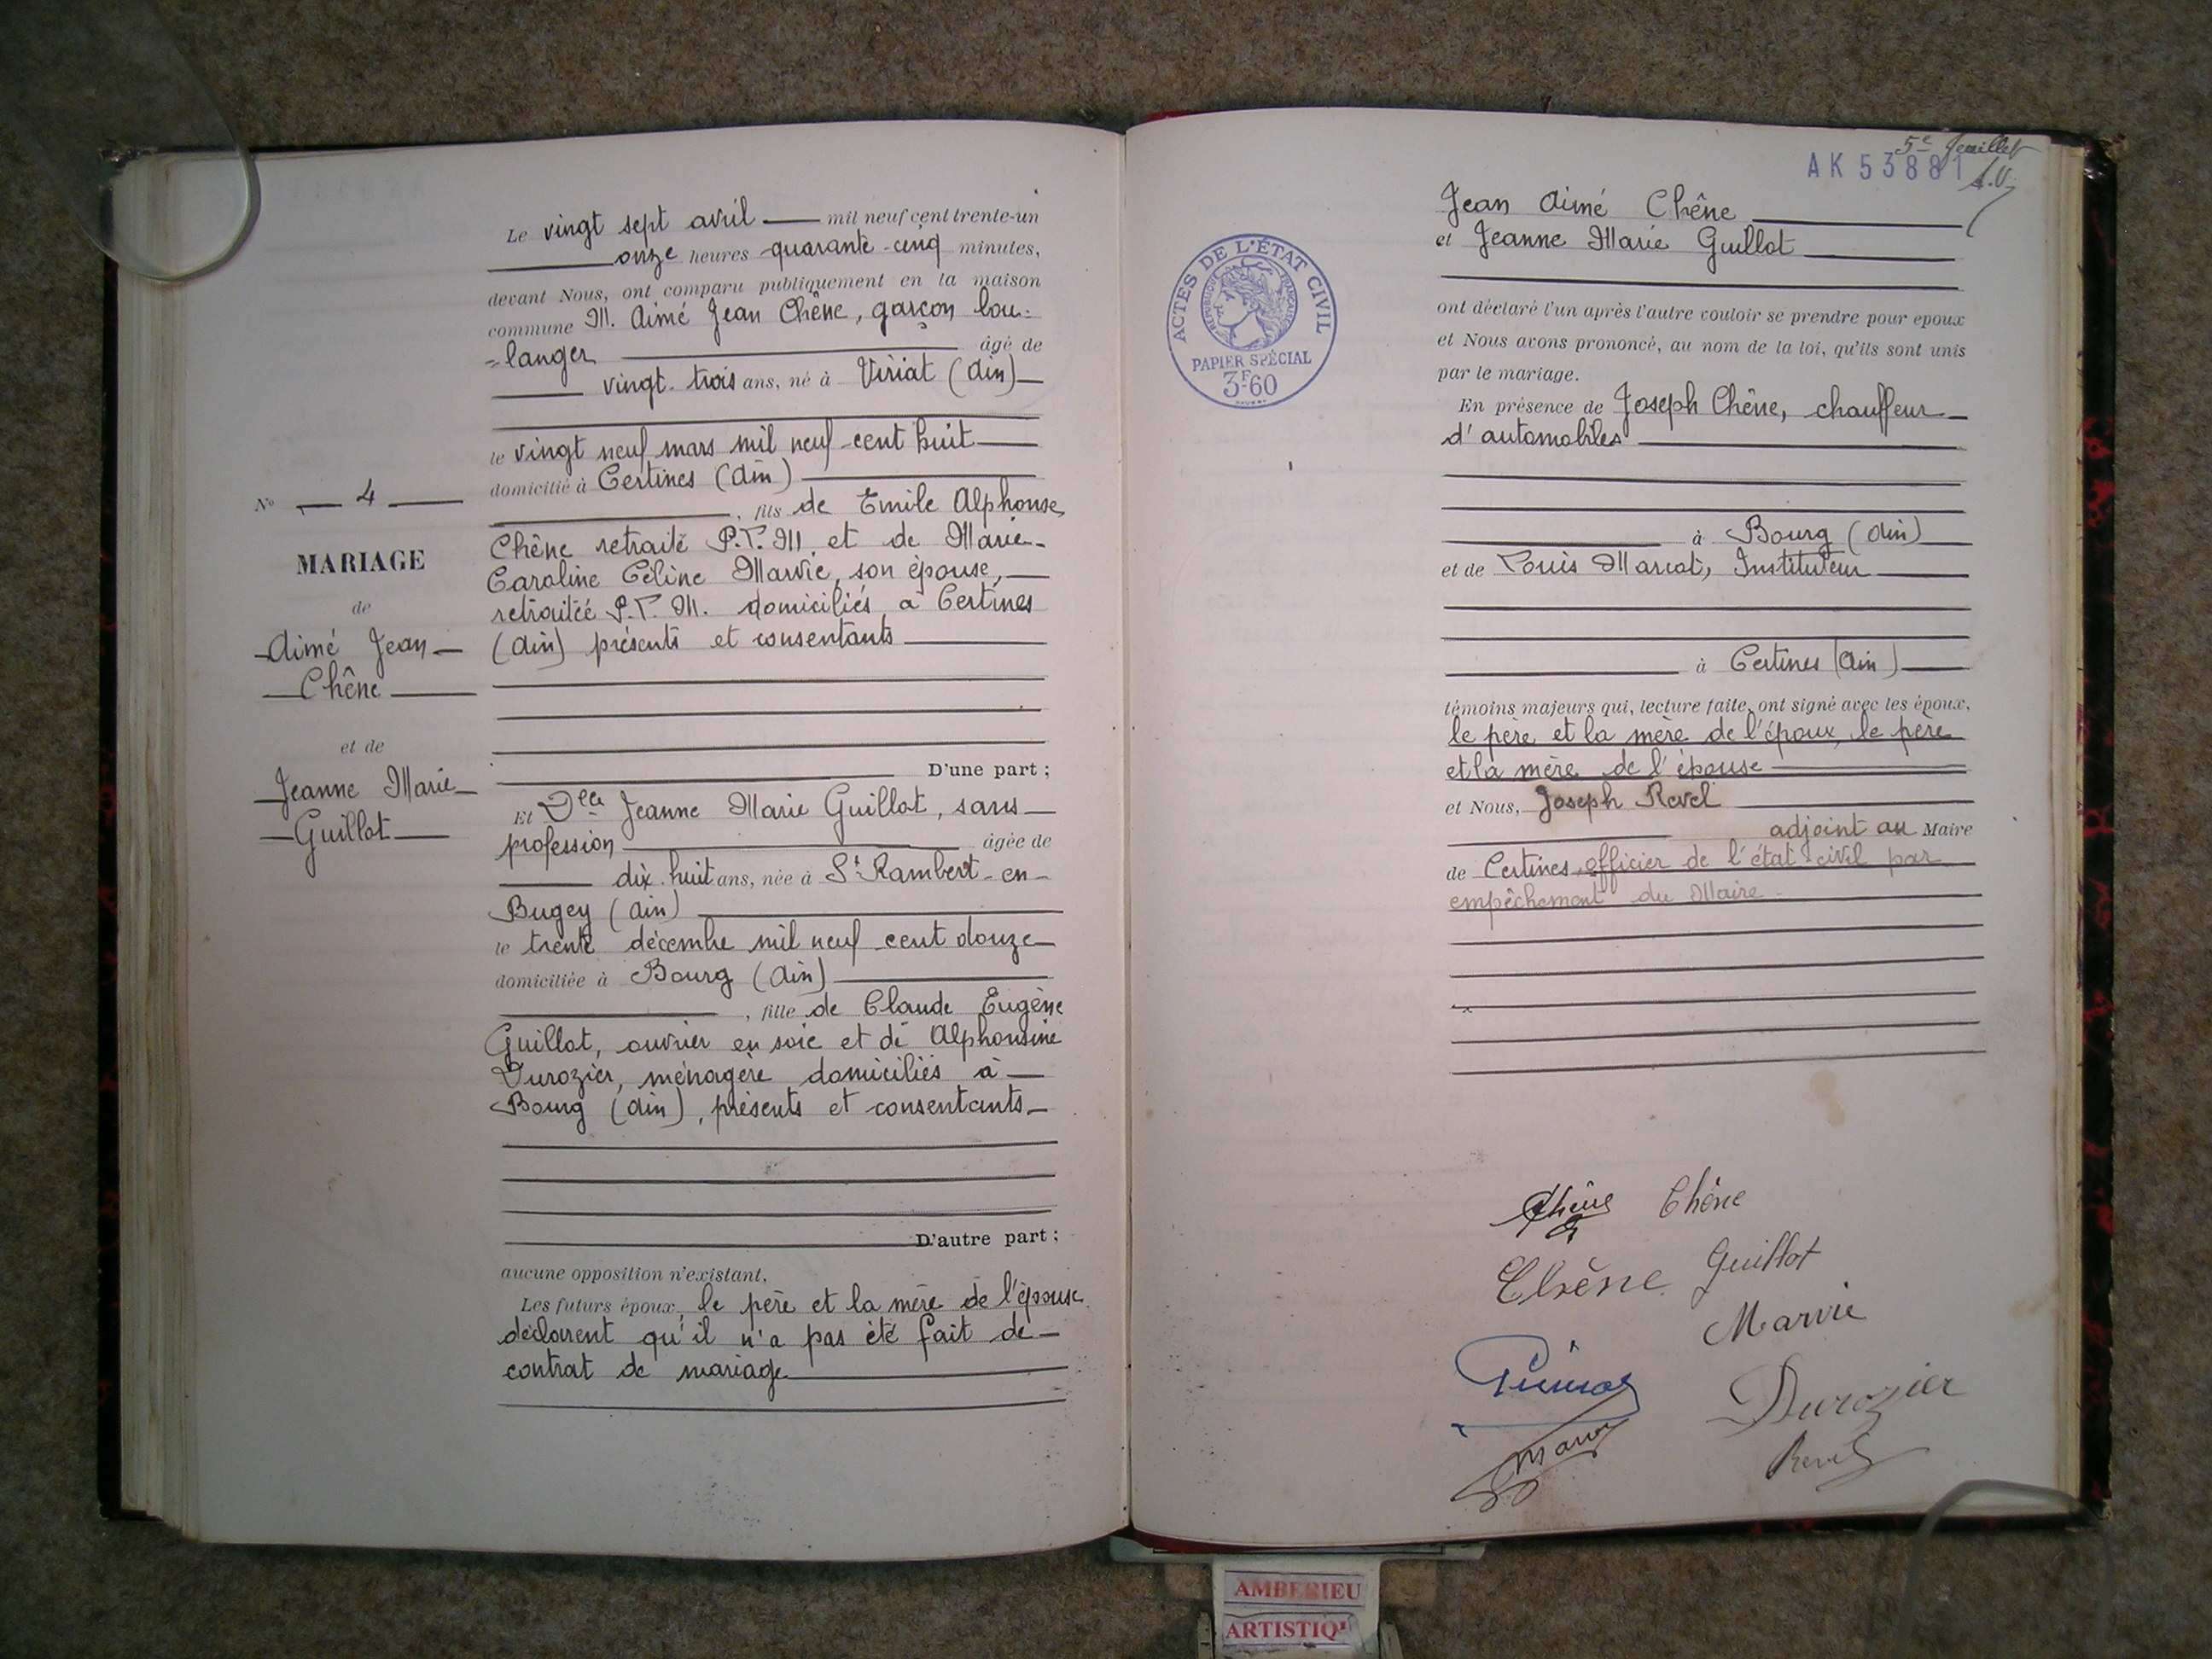 Le vingt sept avril mil neuf cent trente-un
onze heures quarante-cinq minutes,
devant Nous, ont comparu publiquement en la maison
commune M. Aimé Jean Chêne, garçon bou-
-langer âgé de
vingt-trois ans, né à Viriat (Ain)
le vingt neuf mars mil neuf cent huit
domicilié à Certines (Ain)
, fils de Emile Alphonse
Chêne retraité P.T.M. et de Marie-
Caroline Céline Marvie, son épouse,
retraitée P.T.M. domiciliés à Certines
(Ain) présents et consentants
D'une part ;
Et Dlle Jeanne Marie Guillot, sans
profession âgée de
dix-huit ans, née à St Rambert-en-
Bugey (Ain)
le trente décembre mil neuf cent douze
domiciliée à Bourg (Ain)
, fille de Claude Eugène
Guillot, ouvrier en soie et de Alphonsine
Durozier, ménagère domiciliés à
Bourg (Ain), présents et consentants
D'autre part ;
aucune opposition n'existant,
Les futurs époux, le père et la mère de l'épouse
déclarent qu'il n'a pas été fait de
contrat de mariage
No 4
MARIAGE
de
Aimé Jean
Chêne
et de
Jeanne Marie
Guillot
5e feuillet
AK 53881
ACTES DE L'ÉTAT CIVIL
RÉPUBLIQUE FRANÇAISE
PAPIER SPÉCIAL
3F60
Jean Aimé Chêne
et Jeanne Marie Guillot
ont déclaré l'un après l'autre vouloir se prendre pour époux
et Nous avons prononcé, au nom de la loi, qu'ils sont unis
par le mariage.
En présence de Joseph Chêne, chauffeur
d'automobiles
à Bourg (Ain)
et de Louis Instituteur
à Certines (Ain)
témoins majeurs qui, lecture faite, ont signé avec les époux,
le père et la mère de l'époux, le père
et la mère de l'épouse
et Nous, Joseph Revel
adjoint au Maire
de Certines, officier de l'état civil par
empêchement du Maire.
Chêne Chêne
Chêne Guillot
Marvie
Durozier
Revel
AMBERIEU
ARTISTIQ